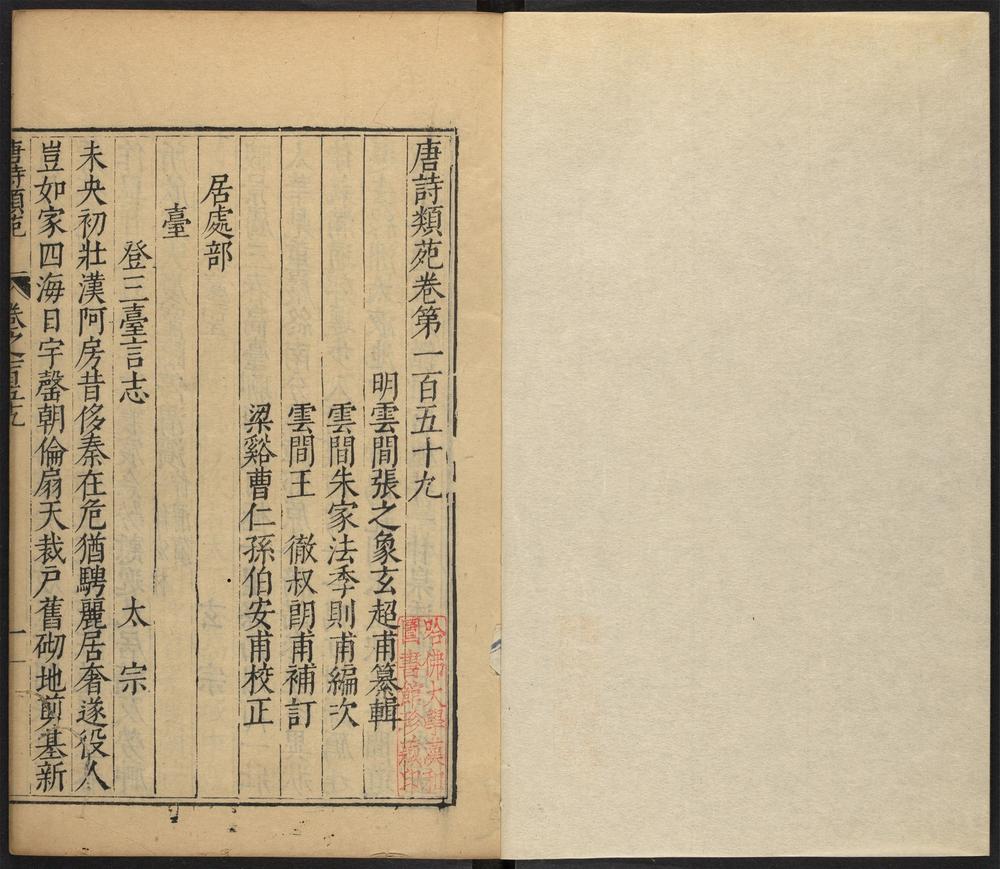 唐詩類苑卷第一百五十九
明雲間張之象玄超甫纂輯
雲間朱家法季則甫編次
雲間王徹叔朗甫補訂
梁谿曹仁孫伯安甫校正
居處部
臺
登三臺言志 太宗
未央初壯漢阿房昔侈秦在危猶騁麗居奢遂役人
豈如家四海日宇罄朝倫扇天裁戶舊砌地翦基新
唐詩類苑 卷之一百五十九 一
哈佛大學漢和
圖書館珍藏印